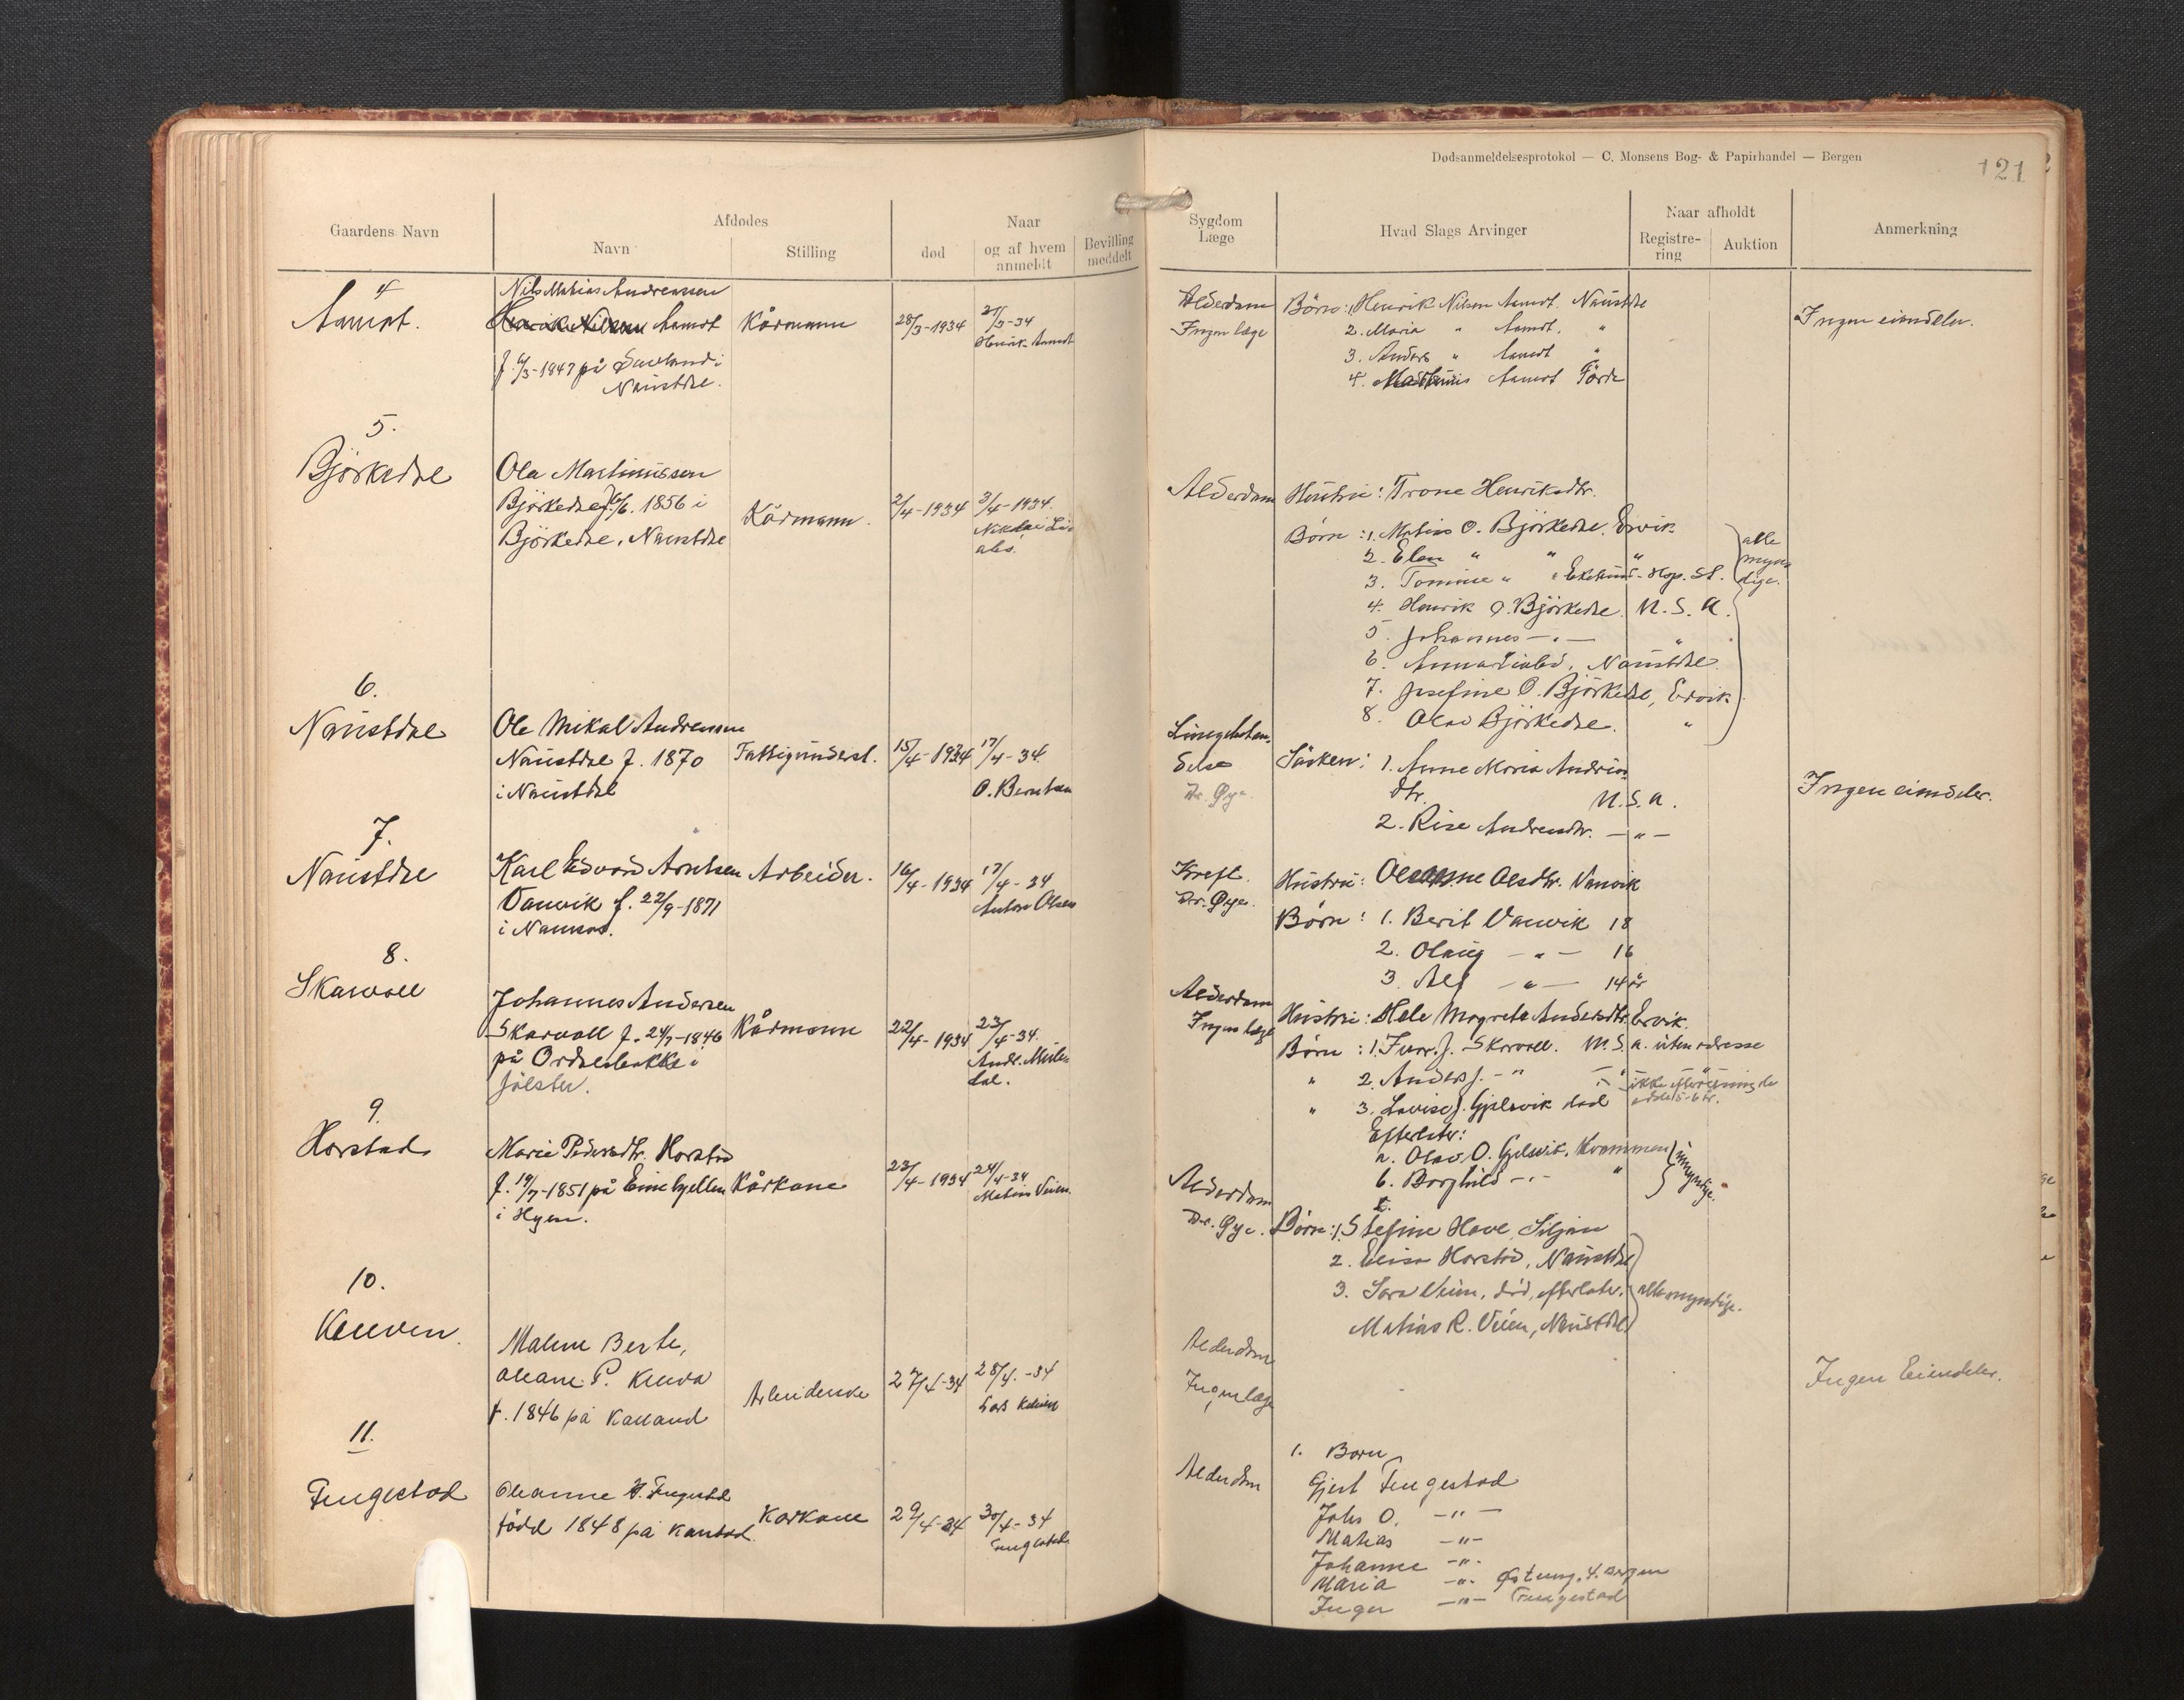 Dødsanmeldelsesprotokol — C. Monsens Bog- & Papirhandel — Bergen
121
Gaardens Navn
Afdødes
Navn
Stilling
Naar
død
og af hvem anmeldt
Bevilling meddelt
Sygdom
Læge
Hvad Slags Arvinger
Naar afholdt
Registre-
ring
Auktion
Anmerkning
4
Aamot.
Nils Matias Andreassen
Aamot
på
i
Naustdal.
Kårmann
28/3-1934
27/3-34
Henrik Aamot
Alderdom
Ingen læge
Børn: 1. Henrik Nilsen Aamot, Naustdal
2. Maria " Aamot, "
3. Anders " Aamot "
4. Aamot Førde
Ingen eiendeler.
5.
Björkedal
Ola Martinussen
Björkedal f. 1856 i
Björkedal, Naustdal
Kårmann.
2/4-1934
3/4-1934.
Alderdom
Hustru: Trone Henriksdtr.
Børn: 1. Matias O. Björkedal, Ervik
2. Elen " " "
3. Tomine "
4. Henrik O. Björkedal. U. S. A.
5. Johannes — " — "
6. Anna Naustdal
7. Josefine O. Björkedal, Ervik.
8. Olav Björkedal. "
alle
myn
dige.
6.
Naustdal
Ole Mikal Andreassen
Naustdal f. 1870
i Naustdal
Fattigunderst.
15/4-1934
17/4-34.
O. Berntsen
Dr. Øye.
Søsken: 1. Anne Maria Andreas
dtr. U.S.A.
2. Andreasdtr. — " —
Ingen eiendeler.
7.
Naustdal
Karl Edvard Arntsen
Vanvik f. 22/9-1871
i Namsos.
Arbeider.
16/4-1934
17/4-34
Anton Olsen
Kreft.
Dr. Øye.
Hustru: Olsdtr. Vanvik
Børn: 1. Berit Vanvik 18
2. Olaug — " — 16
3. Alf — " — 14 år
8.
Skarvoll
Johannes Andersen
Skarvoll f. 24/7-1846
på i
Jølster.
Kårmann
22/4-1934
23/4-34.
Alderdom
Ingen læge
Hustru: Magrete Andersdtr. Ervik.
Børn: 1. J. Skarvoll. U.S.A. uten adresse
" 2. Anders J. — "
" 3. Lovise J. Gjelsvik død
Efterlater:
a. Olav O. Gjelsvik, Kvammen
b. Borghild — " — "
umyndige.
9.
Horstad
Marie Pedersdtr. Horstad
f. 19/7-1851 på
i Hyen.
Kårkone
23/4-1934
24/4-34
Matias Veien.
Alderdom
Dr. Øye.
Børn: 1. Stefine Hove, Siljan
2. Elisa Horstad, Naustdal
3. Sara Veien, död, efterlater.
Matias R. Veien, Naustdal
alle myndige.
10.
Kleiven.
Malene Berte,
Oleane P. Kleiva
f. 1846 på Kalland
27/4-34
28/4.-34
Lars Kleiven
Alderdom
Ingen læge
Ingen Eiendeler.
11.
Fungestad
Oleanne Fungestad
född 1848 på
Karkone
29/4-34
30/4-34
Fungestad
Alderdom
1. Born
Gjert Fungestad
Johs O. — " —
Matias — " —
Johanne — " —
Maria — " —
Inger — " — Fungestad